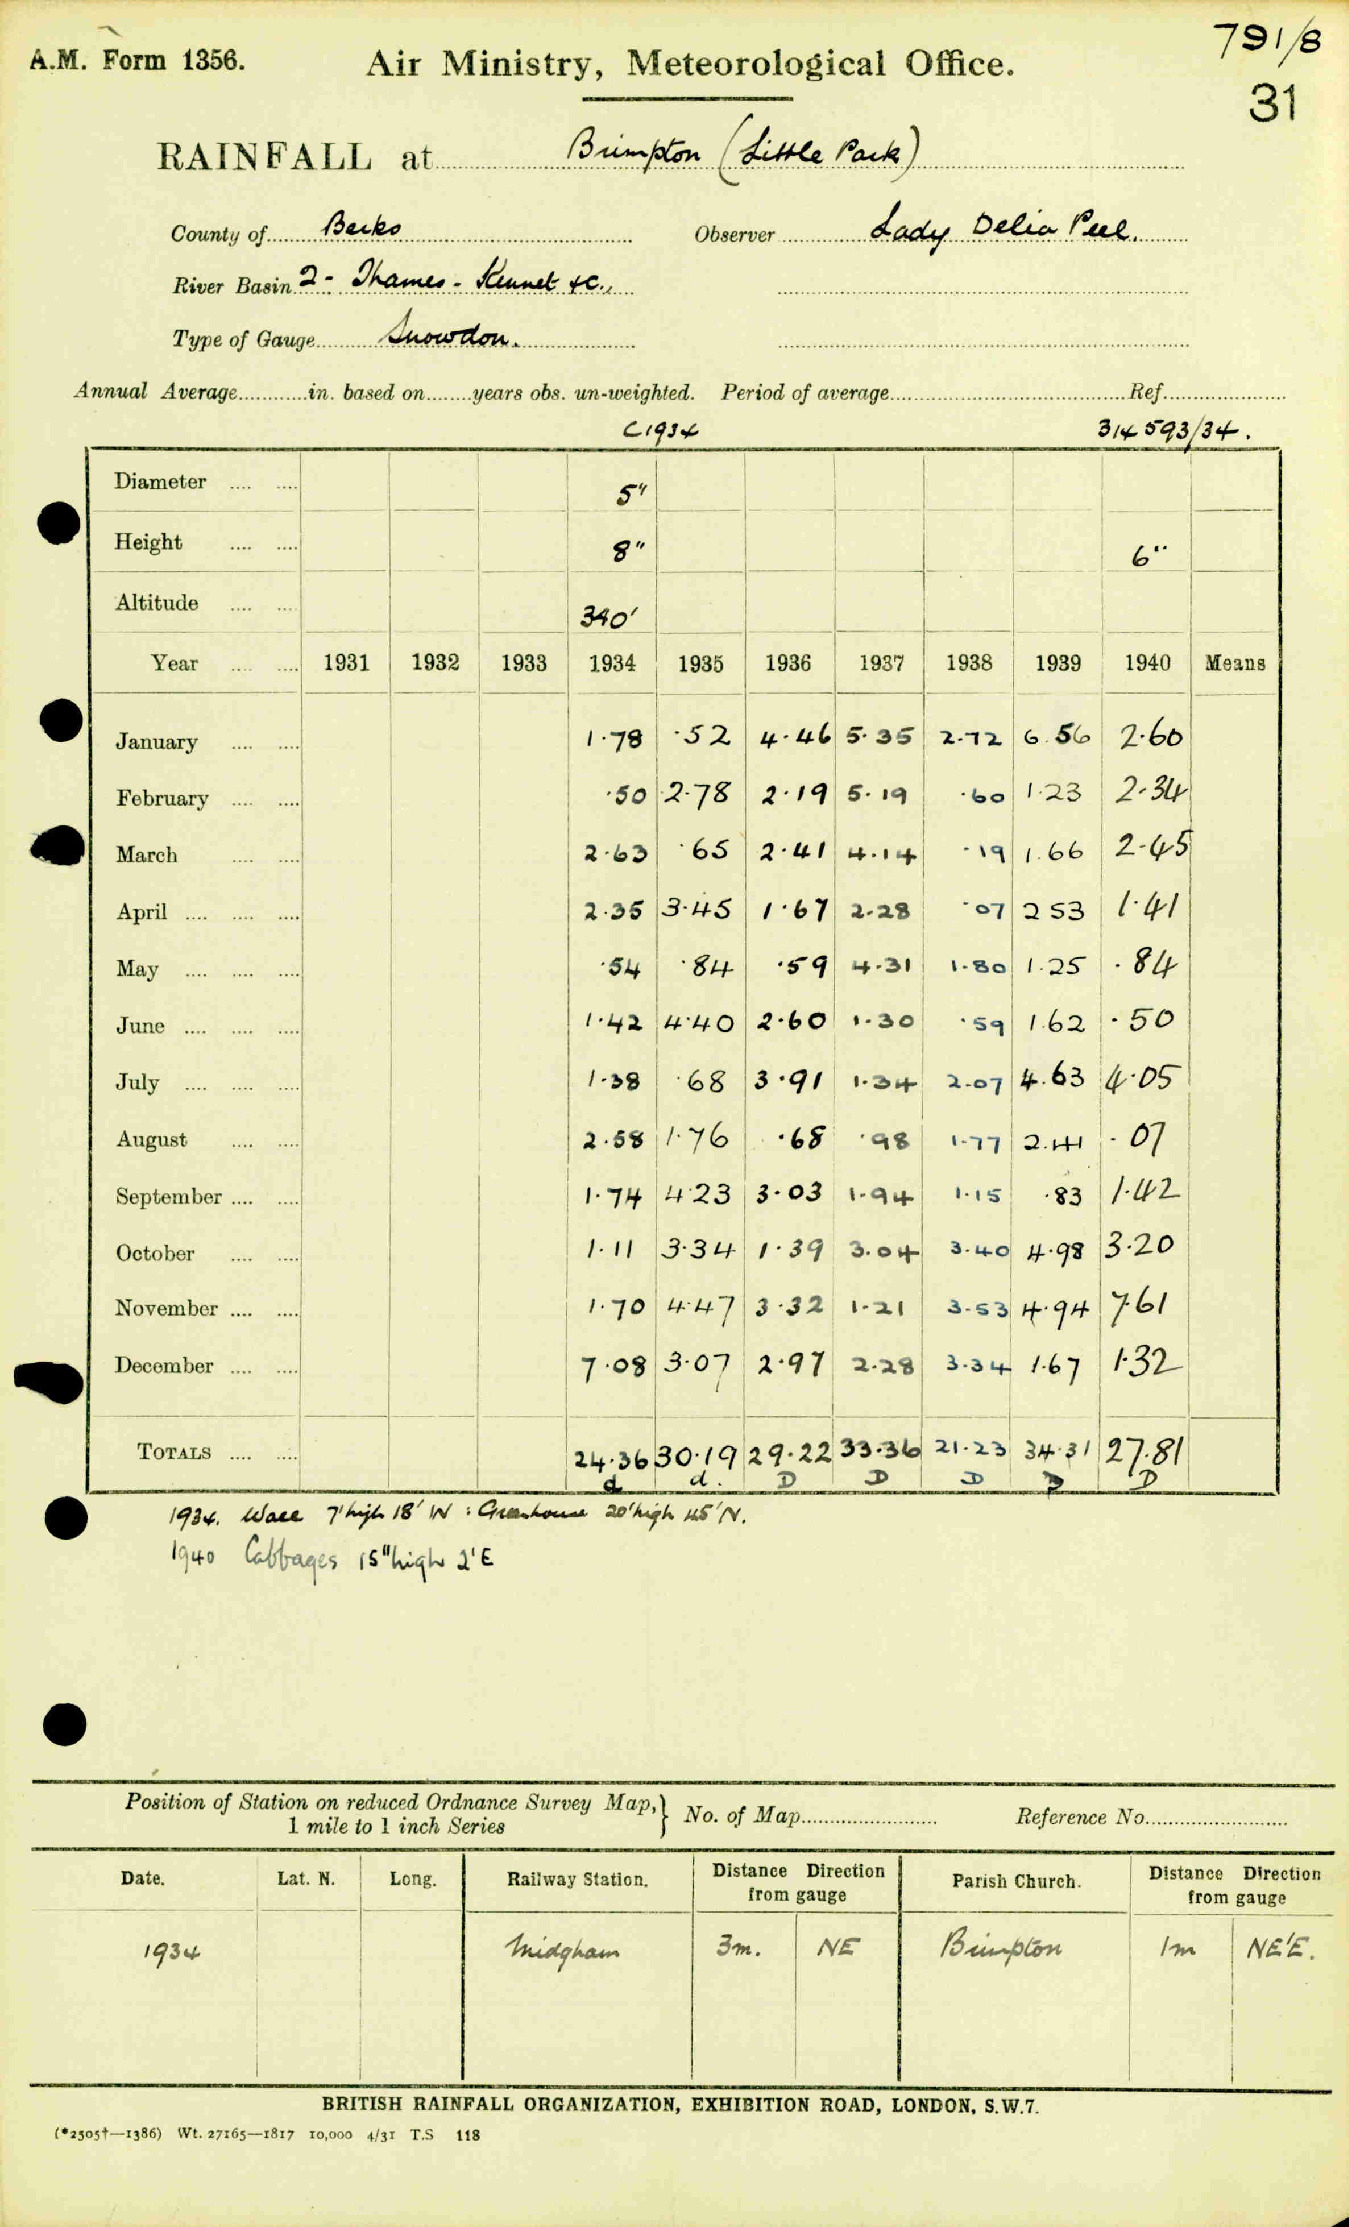 791/8
A.M. Form 1356. Air Ministry, Meteorological Office.
31
RAINFALL at Brimpton (Little Park)
County of Berks Observer Lady Delia Peel.
River Basin 2 - Thames - Kennet &c.,
Type of Gauge Snowdon.
Annual Average in. based on years obs. un-weighted. Period of average Ref.
C1934 314593/34.
Diameter 5"
Height 8" 6"
Altitude 340'
Year 1931 1932 1933 1934 1935 1936 1937 1938 1939 1940 Means
January 1.78 .52 4.46 5.35 2.72 6.56 2.60
February .50 2.78 2.19 5.19 .60 1.23 2.34
March 2.63 .65 2.41 4.14 .19 1.66 2.45
April 2.35 3.45 1.67 2.28 .07 2 53 1.41
May .54 .84 .59 4.31 1.80 1.25 .84
June 1.42 4.40 2.60 1.30 .59 1.62 .50
July 1.38 .68 3.91 1.34 2.07 4.63 4.05
August 2.58 1.76 .68 .98 1.77 2.41 .07
September 1.74 4.23 3.03 1.94 1.15 .83 1.42
October 1.11 3.34 1.39 3.04 3.40 4.98 3.20
November 1.70 4.47 3.32 1.21 3.53 4.94 7.61
December 7.08 3.07 2.97 2.28 3.34 1.67 1.32
TOTALS 24.36 30.19 29.22 33.36 21.23 34.31 27.81
d d. D D D D D
1934. Wall 7' high 18' W : Greenhouse 20' high 45' N.
1940 Cabbages 15" high 2' E
Position of Station on reduced Ordnance Survey Map, } No. of Map Reference No.
1 mile to 1 inch Series
Date. Lat. N. Long. Railway Station. Distance Direction from gauge Parish Church. Distance Direction from gauge
1934 Midgham 3m. NE Brimpton 1m NE'E.
BRITISH RAINFALL ORGANIZATION, EXHIBITION ROAD, LONDON, S.W.7.
(*2505†—1386) Wt. 27165—1817 10,000 4/31 T.S 118